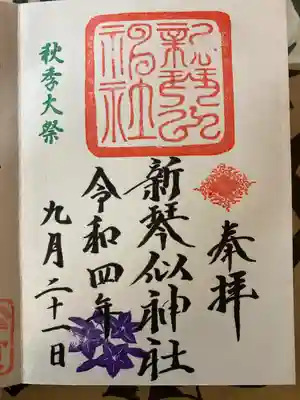 奉拝
新琴似神社
令和四年
九月二十一日
秋季大祭
新琴似
神社